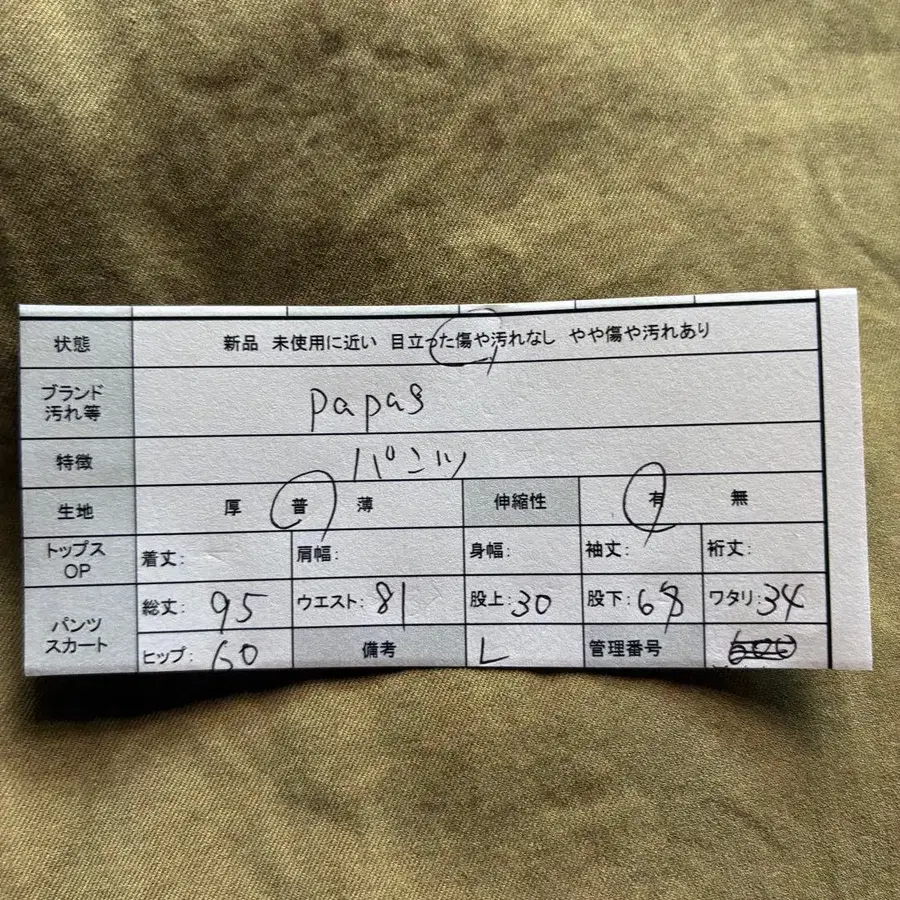 状態 新品 未使用に近い 目立った傷や汚れなし やや傷や汚れあり
ブランド
汚れ等
papas
特徴 パンツ
生地 厚 普 薄 伸縮性 有 無
トップス
OP
着丈: 肩幅: 身幅: 袖丈: 裄丈:
パンツ
スカート
総丈: 95 ウエスト: 81 股上: 30 股下: 68 ワタリ: 34
ヒップ: 60 備考 L 管理番号